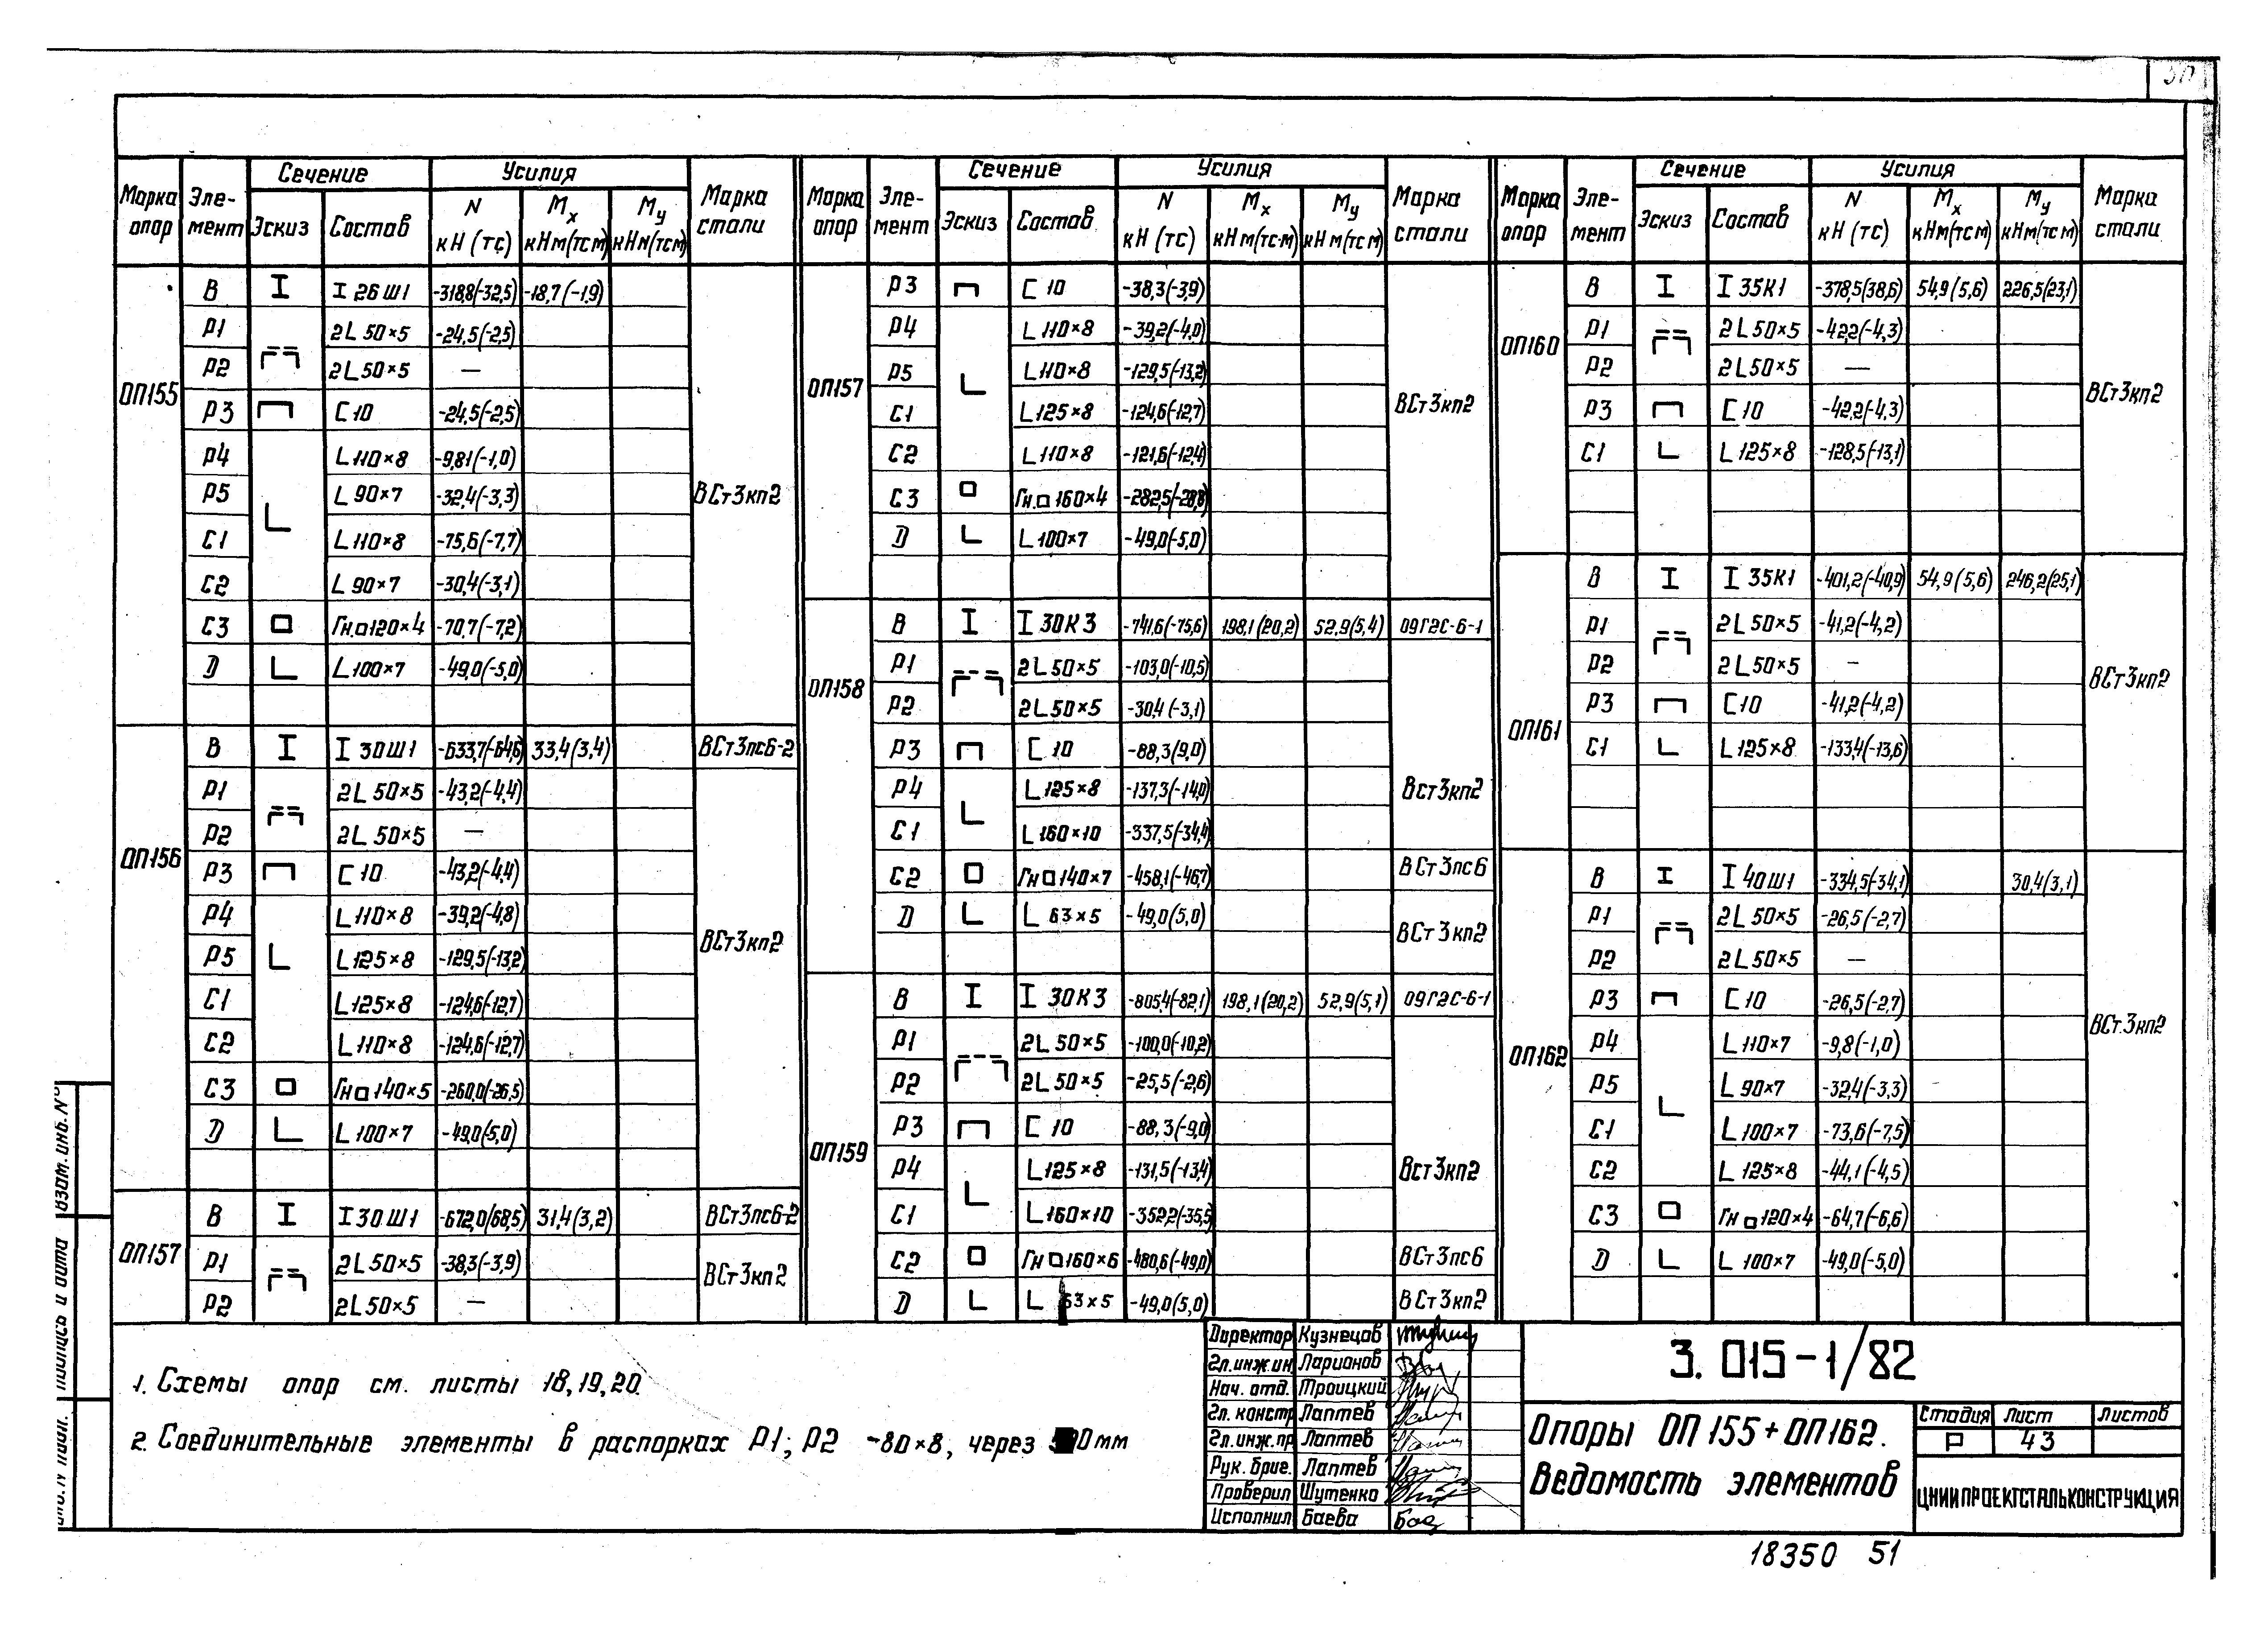 Марка опор Эле-мент Сечение Усилия Марка стали
Эскиз Состав N кН (тс) Mx кНм(тсм) My кНм(тсм)
ОП155
В I 26Ш1 -318,8(-32,5) -18,7(-1,9)
Р1 2L 50×5 -24,5(-2,5)
Р2 2L 50×5 —
Р3 С10 -24,5(-2,5)
Р4 L 110×8 -9,81(-1,0)
Р5 L 90×7 -32,4(-3,3) ВСт3кп2
С1 L 110×8 -75,6(-7,7)
С2 L 90×7 -30,4(-3,1)
С3 Гн.□120×4 -70,7(-7,2)
D L 100×7 -49,0(-5,0)
ОП156
В I 30Ш1 -633,7(-64,6) 33,4(3,4) ВСт3пс6-2
Р1 2L 50×5 -43,2(-4,4)
Р2 2L 50×5 —
Р3 С10 -43,2(-4,4)
Р4 L 110×8 -39,2(-4,8)
Р5 L 125×8 -129,5(-13,2) ВСт3кп2
С1 L 125×8 -124,6(-12,7)
С2 L 110×8 -124,6(-12,7)
С3 Гн□140×5 -260,0(-26,5)
D L 100×7 -49,0(5,0)
ОП157
В I 30Ш1 -672,0(68,5) 31,4(3,2) ВСт3пс6-2
Р1 2L 50×5 -38,3(-3,9) ВСт3кп2
Р2 2L 50×5 —
Марка опор Эле-мент Сечение Усилия Марка стали
Эскиз Состав N кН (тс) Mx кНм(тсм) My кНм(тсм)
ОП157
Р3 С10 -38,3(-3,9)
Р4 L 110×8 -39,2(-4,0)
Р5 L 110×8 -129,5(-13,2)
С1 L 125×8 -124,6(-12,7) ВСт3кп2
С2 L 110×8 -121,6(-12,4)
С3 Гн.□160×4 -282,5(-28,8)
D L 100×7 -49,0(-5,0)
ОП158
В I 30К3 -741,6(-75,6) 198,1(20,2) 52,9(5,4) 09Г2С-6-1
Р1 2L 50×5 -103,0(-10,5)
Р2 2L 50×5 -30,4(-3,1)
Р3 С10 -88,3(9,0)
Р4 L 125×8 -137,3(-14,0) Вст3кп2
С1 L 160×10 -337,5(-34,4)
С2 Гн□140×7 -458,1(-46,7) ВСт3пс6
D L 63×5 -49,0(5,0) ВСт3кп2
ОП159
В I 30К3 -805,4(-82,1) 198,1(20,2) 52,9(5,1) 09Г2С-6-1
Р1 2L 50×5 -100,0(-10,2)
Р2 2L 50×5 -25,5(-2,6)
Р3 С10 -88,3(-9,0)
Р4 L 125×8 -131,5(-13,4) Вст3кп2
С1 L 160×10 -352,2(-35,5)
С2 Гн□160×6 -480,6(-49,0) ВСт3пс6
D L 63×5 -49,0(5,0) ВСт3кп2
Марка опор Эле-мент Сечение Усилия Марка стали
Эскиз Состав N кН (тс) Mx кНм(тсм) My кНм(тсм)
ОП160
В I 35К1 -378,5(38,6) 54,9(5,6) 226,5(23,1)
Р1 2L 50×5 -42,2(-4,3)
Р2 2L 50×5 —
Р3 С10 -42,2(-4,3) ВСт3кп2
С1 L 125×8 -128,5(-13,1)
ОП161
В I 35К1 -401,2(-40,9) 54,9(5,6) 246,2(25,1)
Р1 2L 50×5 -41,2(-4,2)
Р2 2L 50×5 — ВСт3кп2
Р3 С10 -41,2(-4,2)
С1 L 125×8 -133,4(-13,6)
ОП162
В I 40Ш1 -334,5(-34,1) 30,4(3,1)
Р1 2L 50×5 -26,5(-2,7)
Р2 2L 50×5 —
Р3 С10 -26,5(-2,7) ВСт.3кп2
Р4 L 110×7 -9,8(-1,0)
Р5 L 90×7 -32,4(-3,3)
С1 L 100×7 -73,6(-7,5)
С2 L 125×8 -44,1(-4,5)
С3 Гн□120×4 -64,7(-6,6)
D L 100×7 -49,0(-5,0)
1. Схемы опор см. листы 18,19,20.
2. Соединительные элементы в распорках Р1; Р2 -80×8, через мм
Директор Кузнецов
Гл.инж.ин. Ларионов
Нач. отд. Троицкий
Гл. констр Лаптев
Гл.инж.пр Лаптев
Рук. бриг. Лаптев
Проверил Шутенко
Исполнил Баева
3.015-1/82
Опоры ОП155÷ОП162.
Ведомость элементов
Стадия Лист Листов
Р 43
ЦНИИПРОЕКТСТАЛЬКОНСТРУКЦИЯ
18350 51
Взам.инв.N°